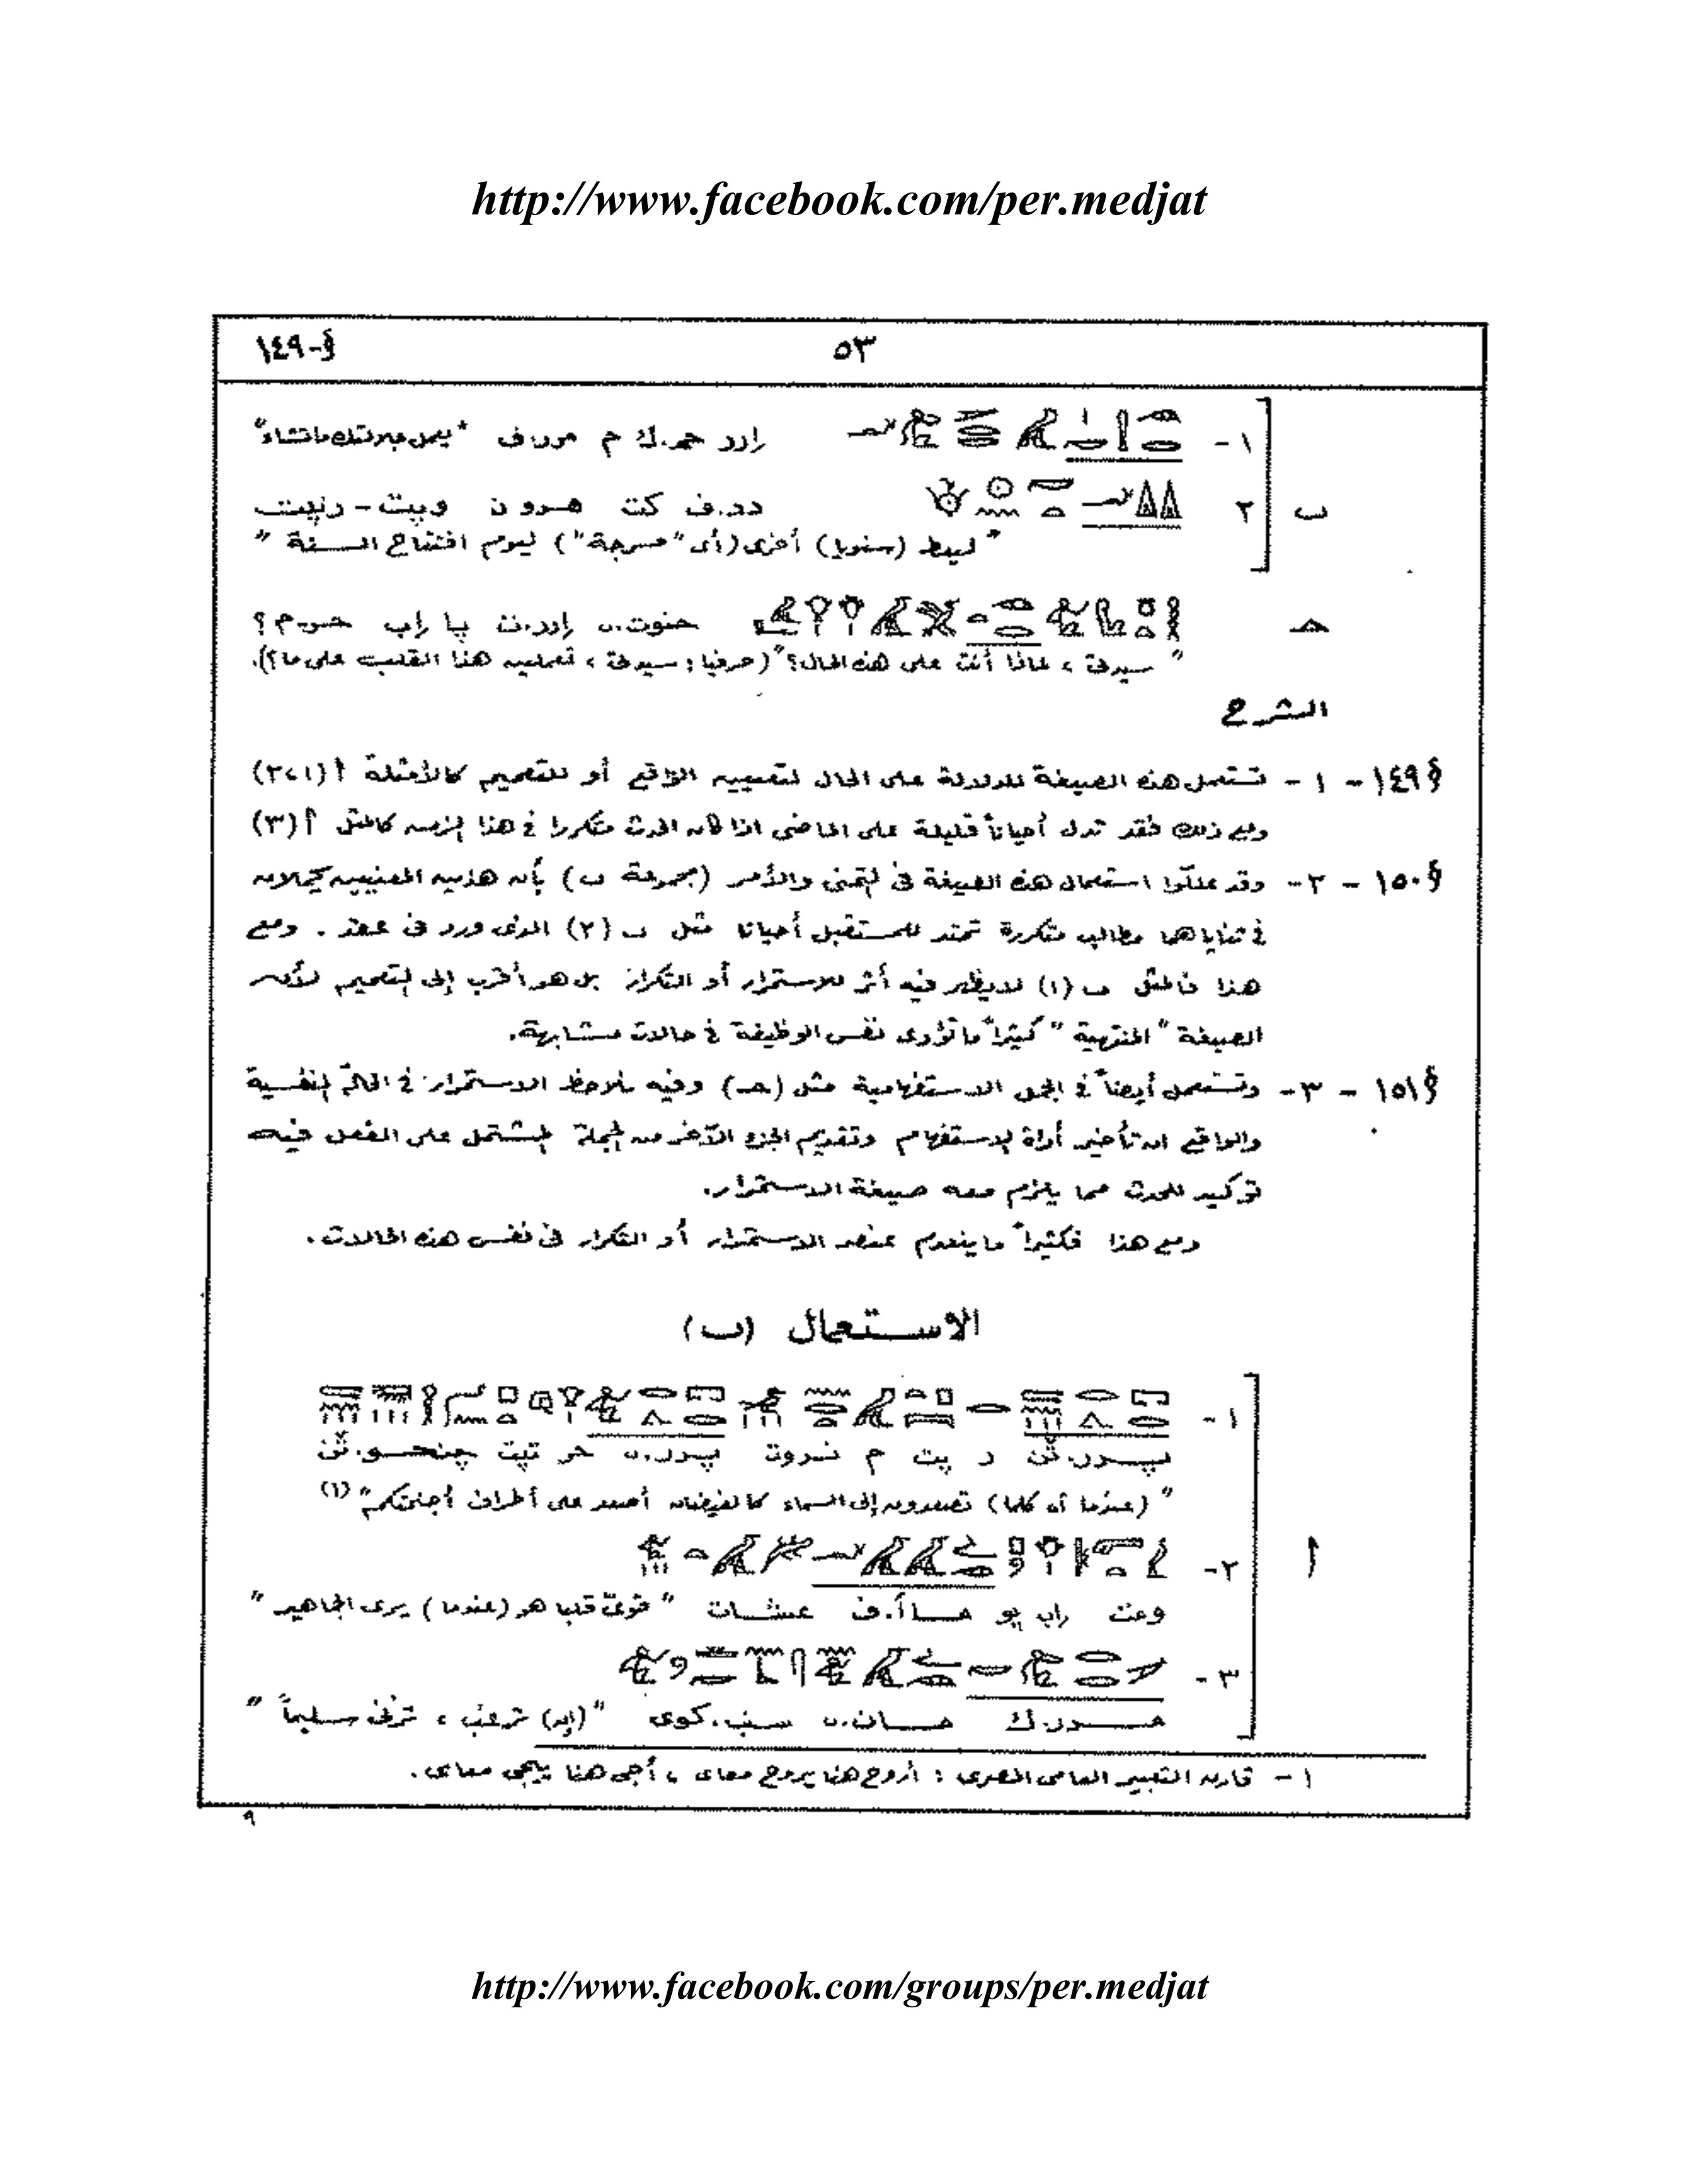 http://www.facebook.com/per.medjat
٥٣
§-١٤٩
١- إرر حم.ك م مرر.ف "يعمل جلالتك ما تشاء"
ب
٢ دد.ف كت هرو ن وپت - رنپت
" ليعط (سنويا) أخرى (أى "مسرجة") ليوم افتتاح السنة "
حـ حنوت.ى إرر.ت پا إب حر م ؟
" سيدتى ، لماذا أنت على هذه الحال؟" (حرفيا: سيدتى ، تعملين هذا القلب على ما؟).
الشرح
§١٤٩ - ١ - تستعمل هذه الصيغة للدلالة على الحال لتعيين الواقع أو للتعميم كالأمثلة أ (١، ٢)
ومع ذلك فقد تدل أحياناً قليلة على الماضى اذا كان الحدث متكررا فى هذا الزمن كالمثل أ (٣)
§١٥٠ - ٢ - وقد عللوا استعمال هذه الصيغة فى التمنى والأمر (مجموعة ب) بأن هذين المعنيين يحملان
فى ثناياهما مطالب متكررة تمتد للمستقبل أحيانا مثل ب (٢) الذى ورد فى عقد . ومع
هذا فالمثل ب (١) لا يظهر فيه أثر للاستمرار أو التكرار بل هو أقرب إلى التعميم لأن
الصيغة " المنتهية " كثيراً ما تؤدى نفس الوظيفة فى حالات مشابهة.
§١٥١ - ٣ - وتستعمل أيضاً فى الجمل الاستفهامية مثل (حـ) وفيه نلاحظ الاستمرار فى الحالة النفسية
والواقع ان تأخير أداة الاستفهام وتقديم الجزء الآخر من الجملة المشتمل على الفعل فيه
توكيد للحدث مما يلزم معه صيغة الاستمرار.
ومع هذا فكثيراً ما ينعدم عنصر الاستمرار أو التكرار فى نفس هذه الحالات .
الاستعمال (ب)
١-
پرر.ثن ر پت م نروت پرر.ى حر تپت چنحو.ثن
" (عندما أو كلما) تصعدون إلى السماء أصعد على أطراف أجنحتكم " (١)
أ
٢-
إب پو ماأ.ف عشات " قوى قلبا هو (عندما) يرى الجماهير "
٣-
مرر.ك ماان.ى سنب.كوى "(إن) ترغب ، ترنى سليماً "
١ - قارن التعبير العامى المصرى : أروح هنا يروح معاى ، أجى هنا ييجى معاى .
٩
http://www.facebook.com/groups/per.medjat